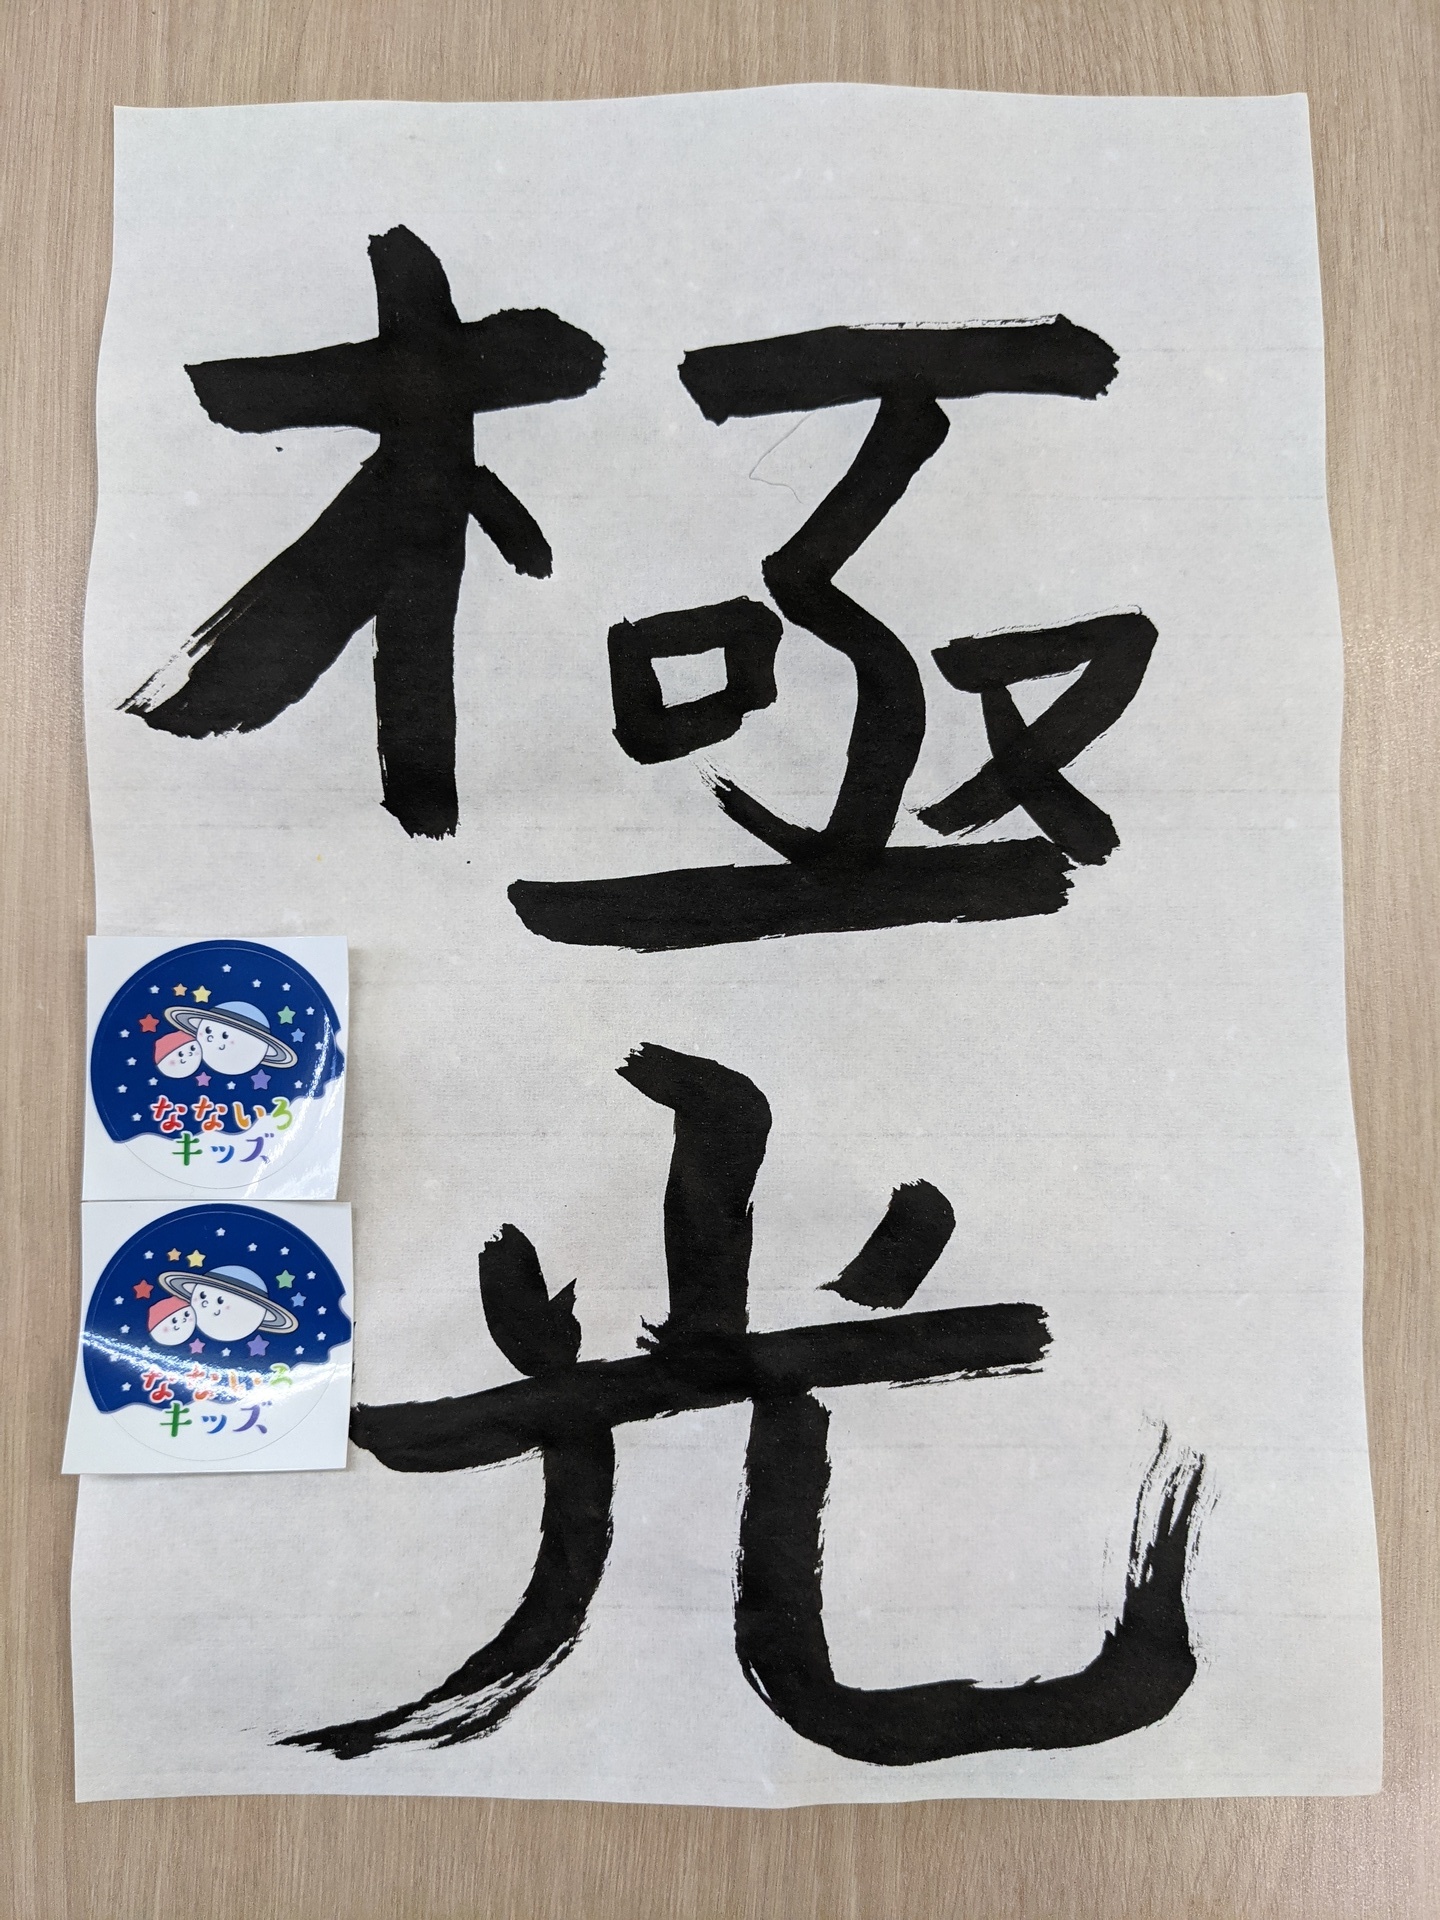 極光
なないろ
キッズ
なないろ
キッズ